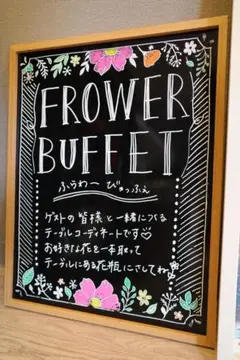 FROWER
BUFFET
ふらわー びゅっふぇ
ゲストの皆様と一緒につくる
テーブルコーディネートです♡
お好きなお花を一本取って
テーブルにある花瓶にさしてね